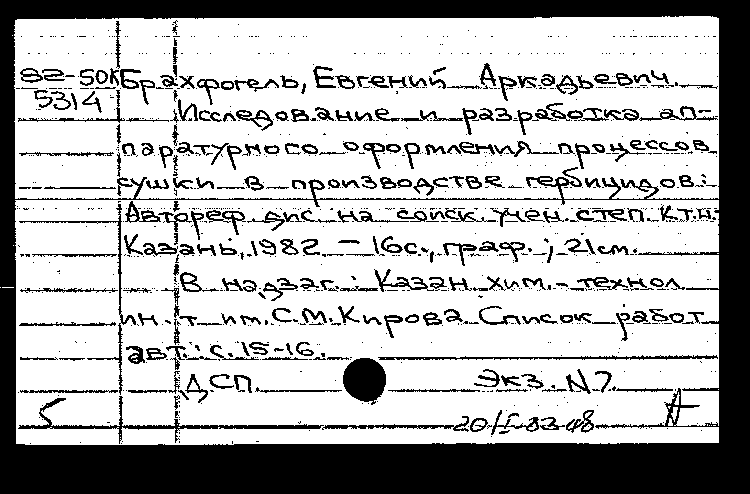 82-50К Брахфогель, Евгений Аркадьевич.
5314 Исследование и разработка ап-
паратурного оформления процессов
сушки в производстве гербицидов:
Автореф. дис. на соиск. учен. степ. к.т.н.
Казань, 1982 – 16с., граф.; 21см.
В надзаг.: Казан. хим.-технол
ин.-т им. С.М. Кирова Список работ
авт.: с. 15-16.
ДСП. Экз. N7.
5 А